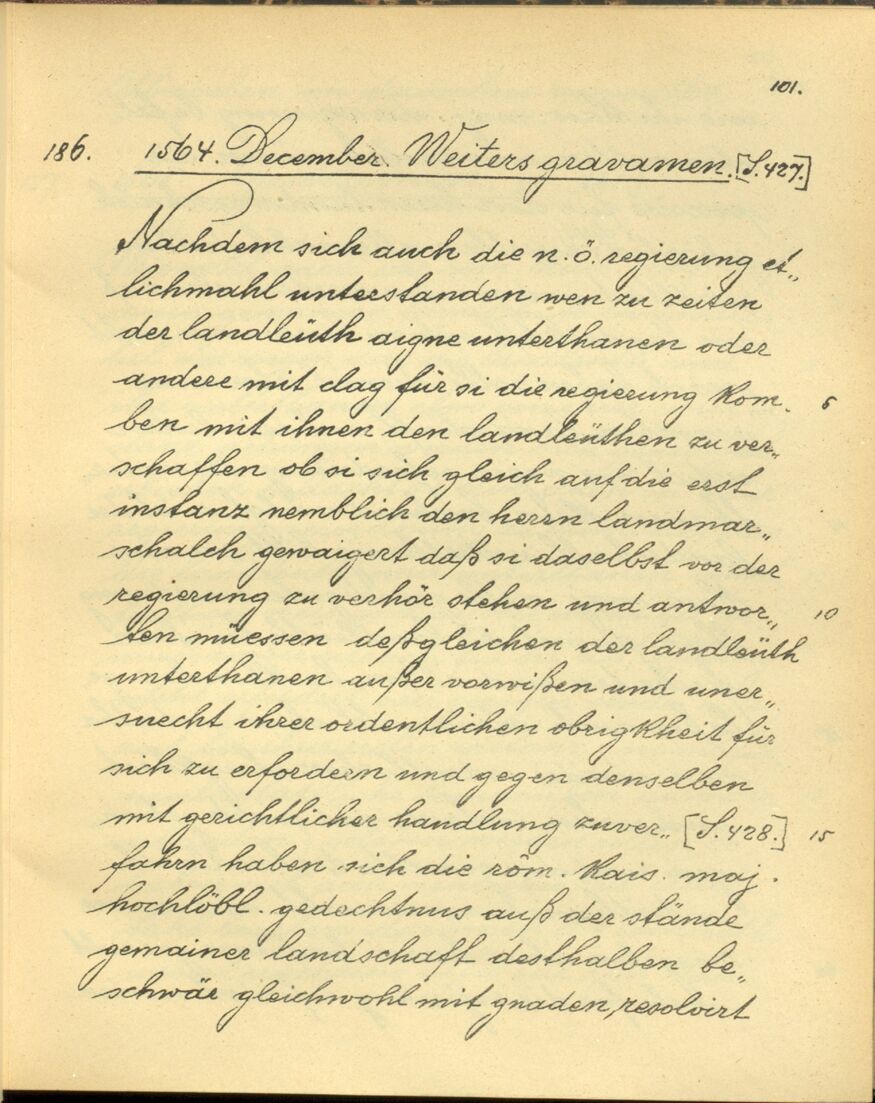 101.
186. 1564. December. Weiters gravamen. [S. 427.]
Nachdem sich auch die n. ö. regierung et„
lichmahl unterstanden wen zu zeiten
der landleüth aigne unterthanen oder
andere mit clag für si die regierung kom- 5
ben mit ihnen den landleüthen zu ver„
schaffen ob si sich gleich auf die erst
instanz nemblich den herrn landmar„
schalch gewaigert daß si daselbst vor der
regierung zu verhör stehen und antwor„ 10
ten müessen deßgleichen der landleüth
unterthanen außer vorwißen und uner„
suecht ihrer ordentlichen obrigkheit für
sich zu erfordern und gegen denselben
mit gerichtlicher handlung zuver„ [S. 428.] 15
fahrn haben sich die röm. kais. maj.
hochlöbl. gedechtnus auß der stände
gemainer landschaft desthalben be„
schwär gleichwohl mit gnaden resolvirt